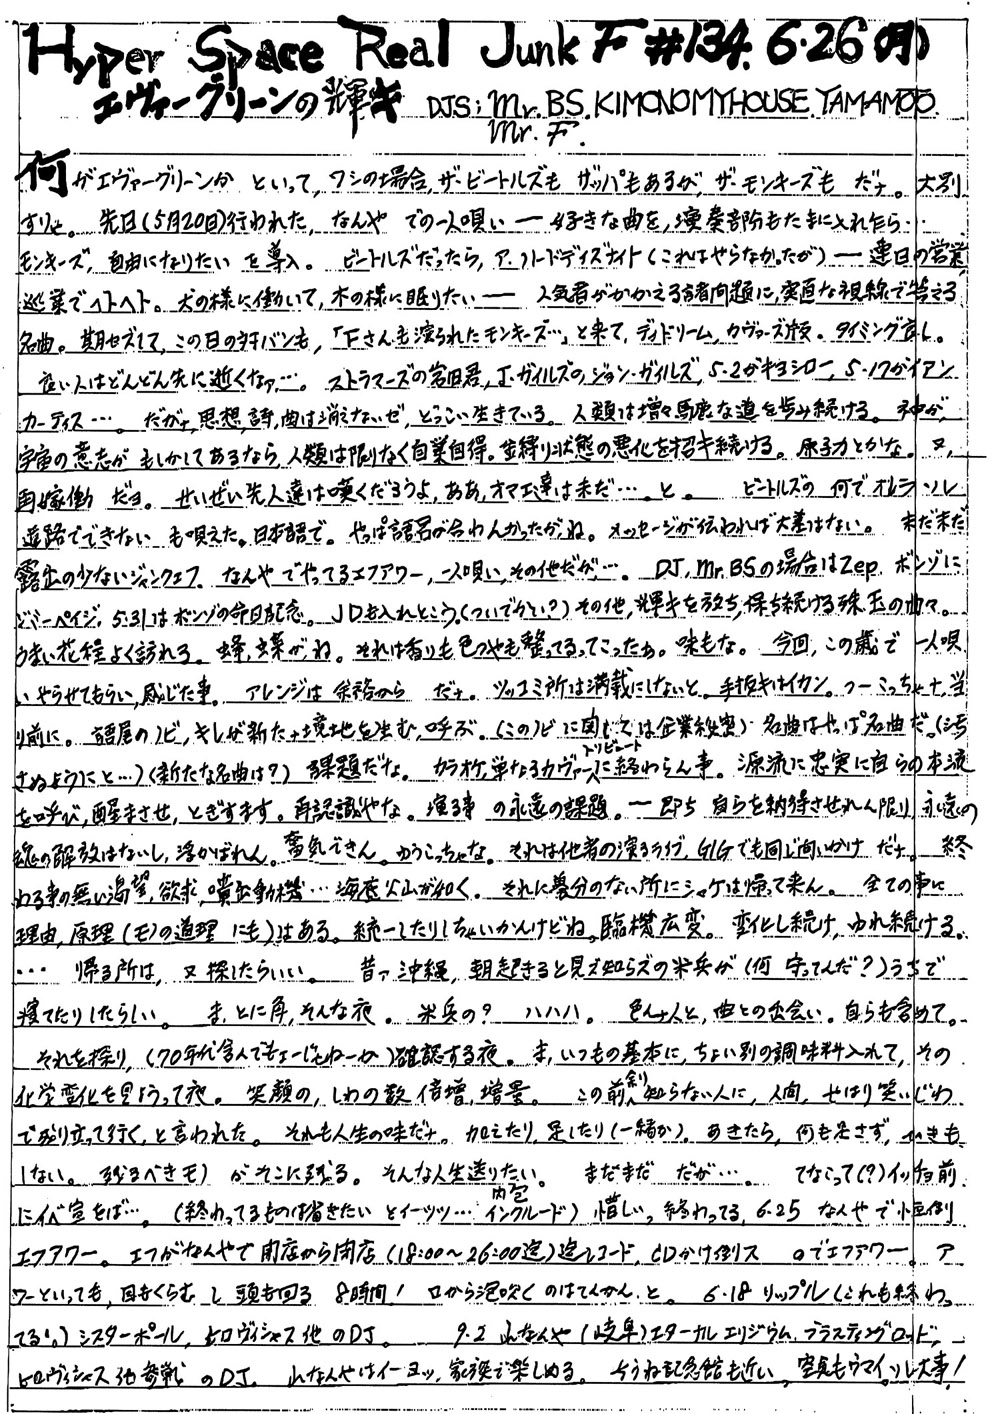 Hyper Space Real Junk F #134. 6・26(月)
エヴァーグリーンの輝き DJS; Mr. BS. KIMONOMYHOUSE. YAMAMOTO.
Mr. F.
何がエヴァーグリーンか といって, ワシの場合, ザ・ビートルズも ザッパもあるが, ザ・モンキーズも だナ。 大別
すりゃ。 先日(5月20日)行われた, なんや での一人唄い ― 好きな曲を, 演奏部分もたまに入れたら…
モンキーズ, 自由になりたい を導入。 ビートルズだったら, ア・ハードデイズナイト(これはやらなかったが) ― 連日の営業
巡業でヘトヘト。 犬の様に働いて, 木の様に眠りたい ― 人気者がかかえる諸問題に, 実直な視線で答える
名曲。 期せずして, この日の対バンも, 「Fさんも演られたモンキーズ…」と来て, デイドリーム, カヴァーズ版。 タイミング良し。
良い人はどんどん先に逝くなァ…。 ストラマーズの岩田君, J・ガイルズの, ジョン・ガイルズ, 5・2がキヨシロー, 5・17がイアン
カーティス …。 だがナ, 思想, 詩, 曲は消えないゼ, どっこい生きている。 人類は増々馬鹿な道を歩み続ける。 神が,
宇宙の意志が もしかしてあるなら, 人類は限りなく自業自得。 金縛り状態の悪化を招キ続ける。 原子力とかな。 又,
再稼働 だョ。 せいぜい先人達は嘆くだろうよ, ああ, オマエ達は未だ… と。 ビートルズの 何でオレラ ソレ
道路でできない も唄えた。 日本語で。 やっぱ語呂が合わんかったがね。 メッセージが伝われば大差はない。 未だ未だ
露出の少ないジャンクエフ なんや でやってるエフアワー, 一人唄い, その他だが…。 DJ, Mr. BSの場合はZep. ボンゾに
ジミーペイジ, 5・31はボンゾの命日記念。 JDも入れとこう, (ついでかい?) その他, 輝キを放ち, 保ち続ける珠玉の曲々。
うまい花程よく訪れる。 蜂, 蝶が, ね。 それは香りも色つやも整ってるってこったぁ。 味もな。 今回, この歳で 一人唄
い やらせてもらい, 感じた事。 アレンジは 余裕から だナ。 ツッコミ所は満載にしないと。 手抜キはイカン。 つーこっちゃナ, 当
り前に。 語尾の ノビ, キレが新たナ境地を生む, 呼ぶ。 (このノビ に関しては企業秘密) 名曲はやっぱ名曲だ。
さぬようにと…) (新たな名曲は?) 課題だな。 カラオケ, 単なるカヴァーに終わらん事。 源流に忠実に自らの本流
トリビュート
を呼び, 醒まさせ, とぎすます。 再認識やな。 演る事 の永遠の課題。 ― 即ち 自らを納得させれん限り, 永遠の
魂の解放はないし, 浮かばれん。 奮気できん。 つうこっちゃな。 それは他者の演るライヴ, GIGでも同じ問いかけ だナ。 終
わる事の無い渇望, 欲求, 噴出動機… 海底火山が如く。 それに養分のない所にシャケは帰って来ん。 全ての事に
理由, 原理(モノの道理 にも)はある。 統一したりしちゃいかんけどね。 臨機応変。 変化し続け, ゆれ続ける。
… 帰る所は, 又 探したらいい。 昔ァ 沖縄, 朝起きると見ズ知らズの米兵が (何 守ってんだ?) うちで
寝てたりしたらしい。 ま, とに角, そんな夜。 米兵の? ハハハ。 色んナ人と, 曲との出会い。 自らも含めて。
それを探り, (70年代含んでもェーじゃねーか)確認する夜。 ま, いつもの基本に, ちょい別の調味料入れて, その
化学変化を見ようって夜。 笑顔の, しわの数 倍増, 増量。 この前, 知らない人に, 人間, やはり笑いじわ
で成り立って行く, と言われた。 それも人生の味だナ。 加えたり, 足したり(一緒か)。 あきたら, 何も足さず, ひきも
しない。 残るべきモノ がそこに残る。 そんな人生送りたい。 まだまだ だが… てなって(?)イッチョ前
にイベ宣をば…。 (終わってるものは省きたい とイーツツ… インクルード) 惜しい, 終わってる, 6・25 なんや で小豆倒
内包
エフアワー。 エフがなんやで開店から閉店(18:00~26:00迄)迄レコード, CDかけ倒ス のでエフアワー。 ア
ワーといっても, 目もくらむ し 頭も回る 8時間! 口から泡吹くのはてんかん と。 6・18 リップル(これも終わっ
てる。) シスターポール, ヒロヴィシャス他 のDJ。 9・2 れなんや(岐阜)エターナルエリジウム, ブラスティングロッド,
ヒロヴィシャス 他参戦 のDJ。 れなんやはイーヨッ, 家族で楽しめる。 ちうね記念館も近い, 空気もウマイ。ソレ大事!